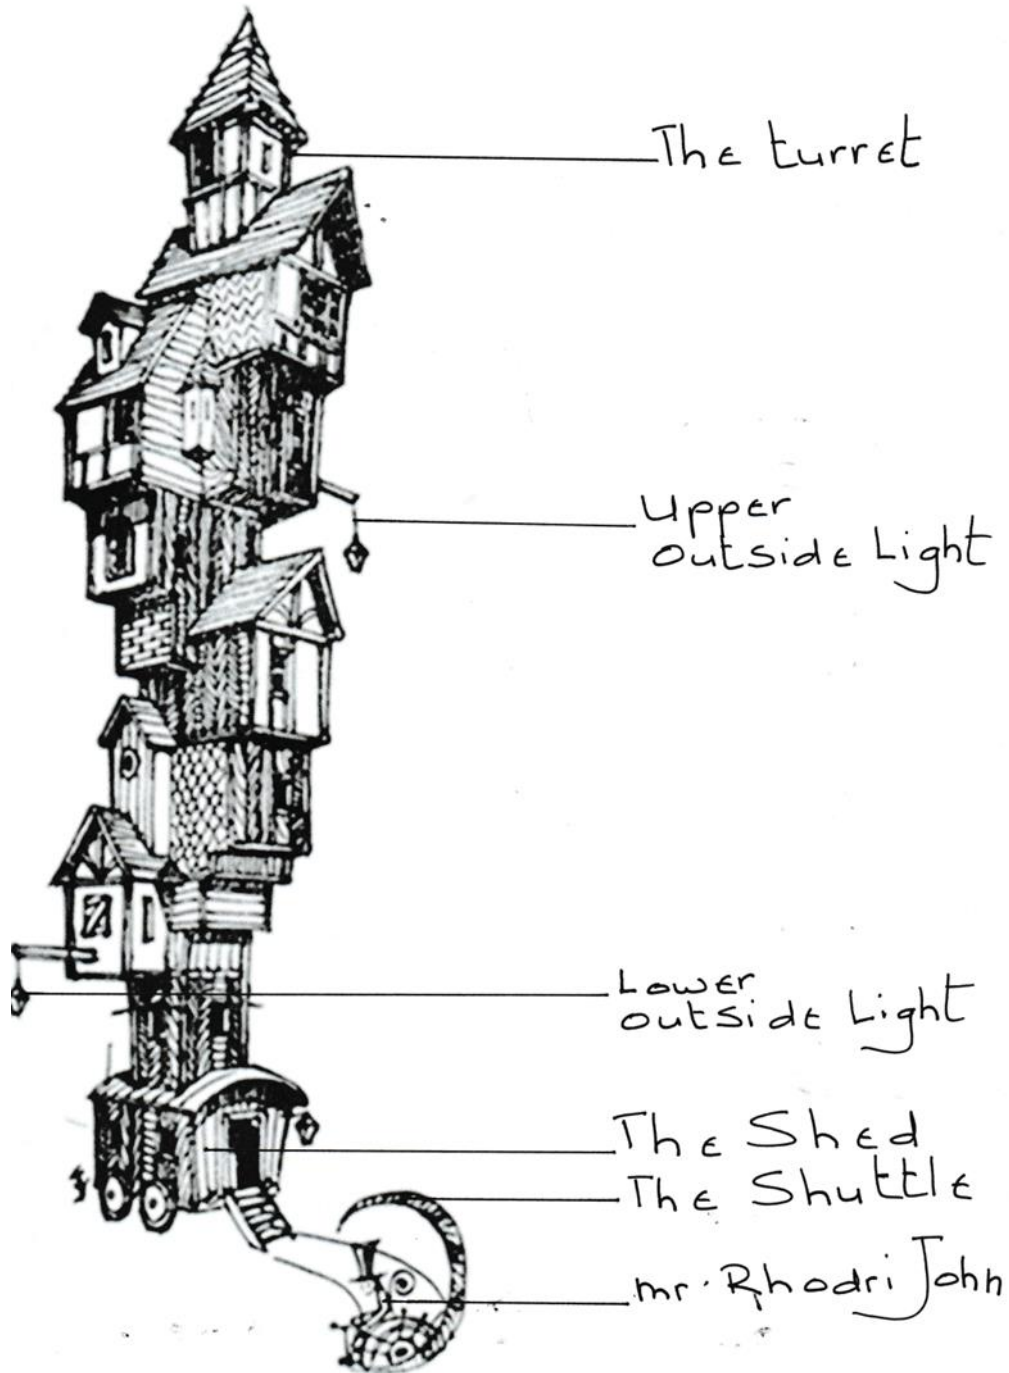 The turret
Upper
outside Light
Lower
outside Light
The Shed
The Shuttle
mr. Rhodri John